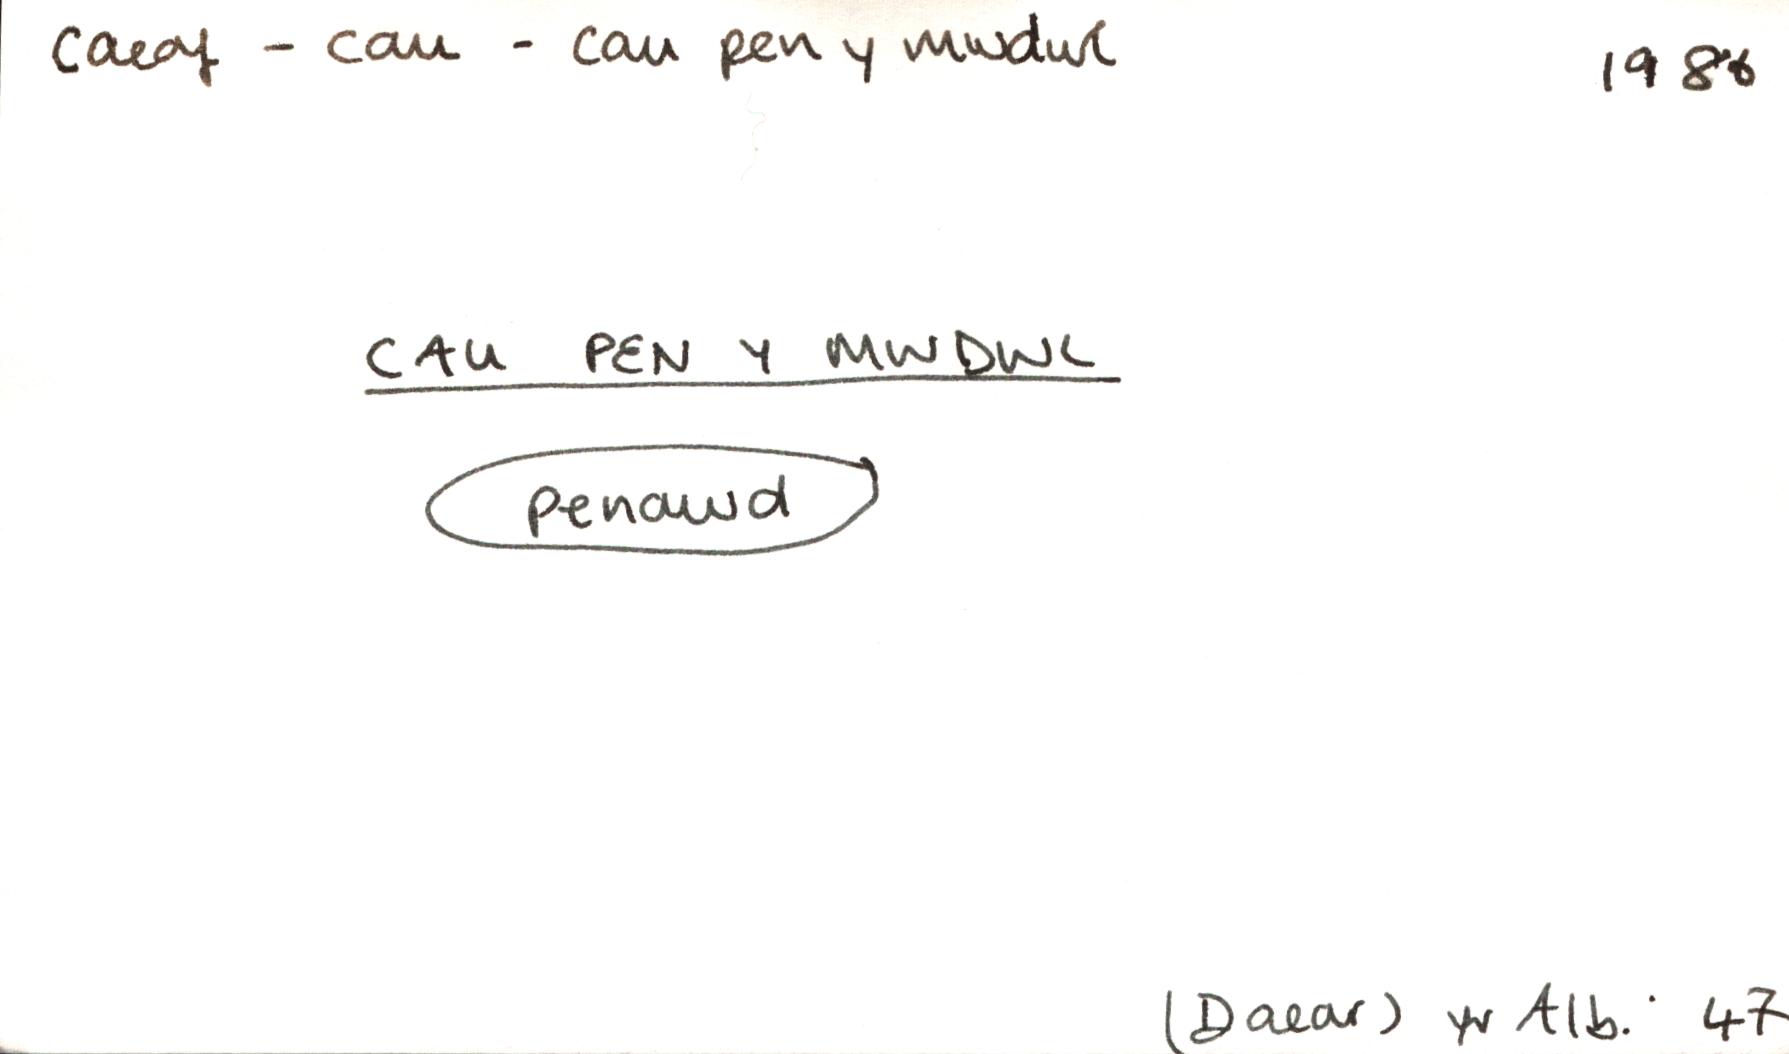 caeaf - cau - cau pen y mwdwl
1986
CAU PEN Y MWDWL
penawd
(Daear) yr Alb. 47